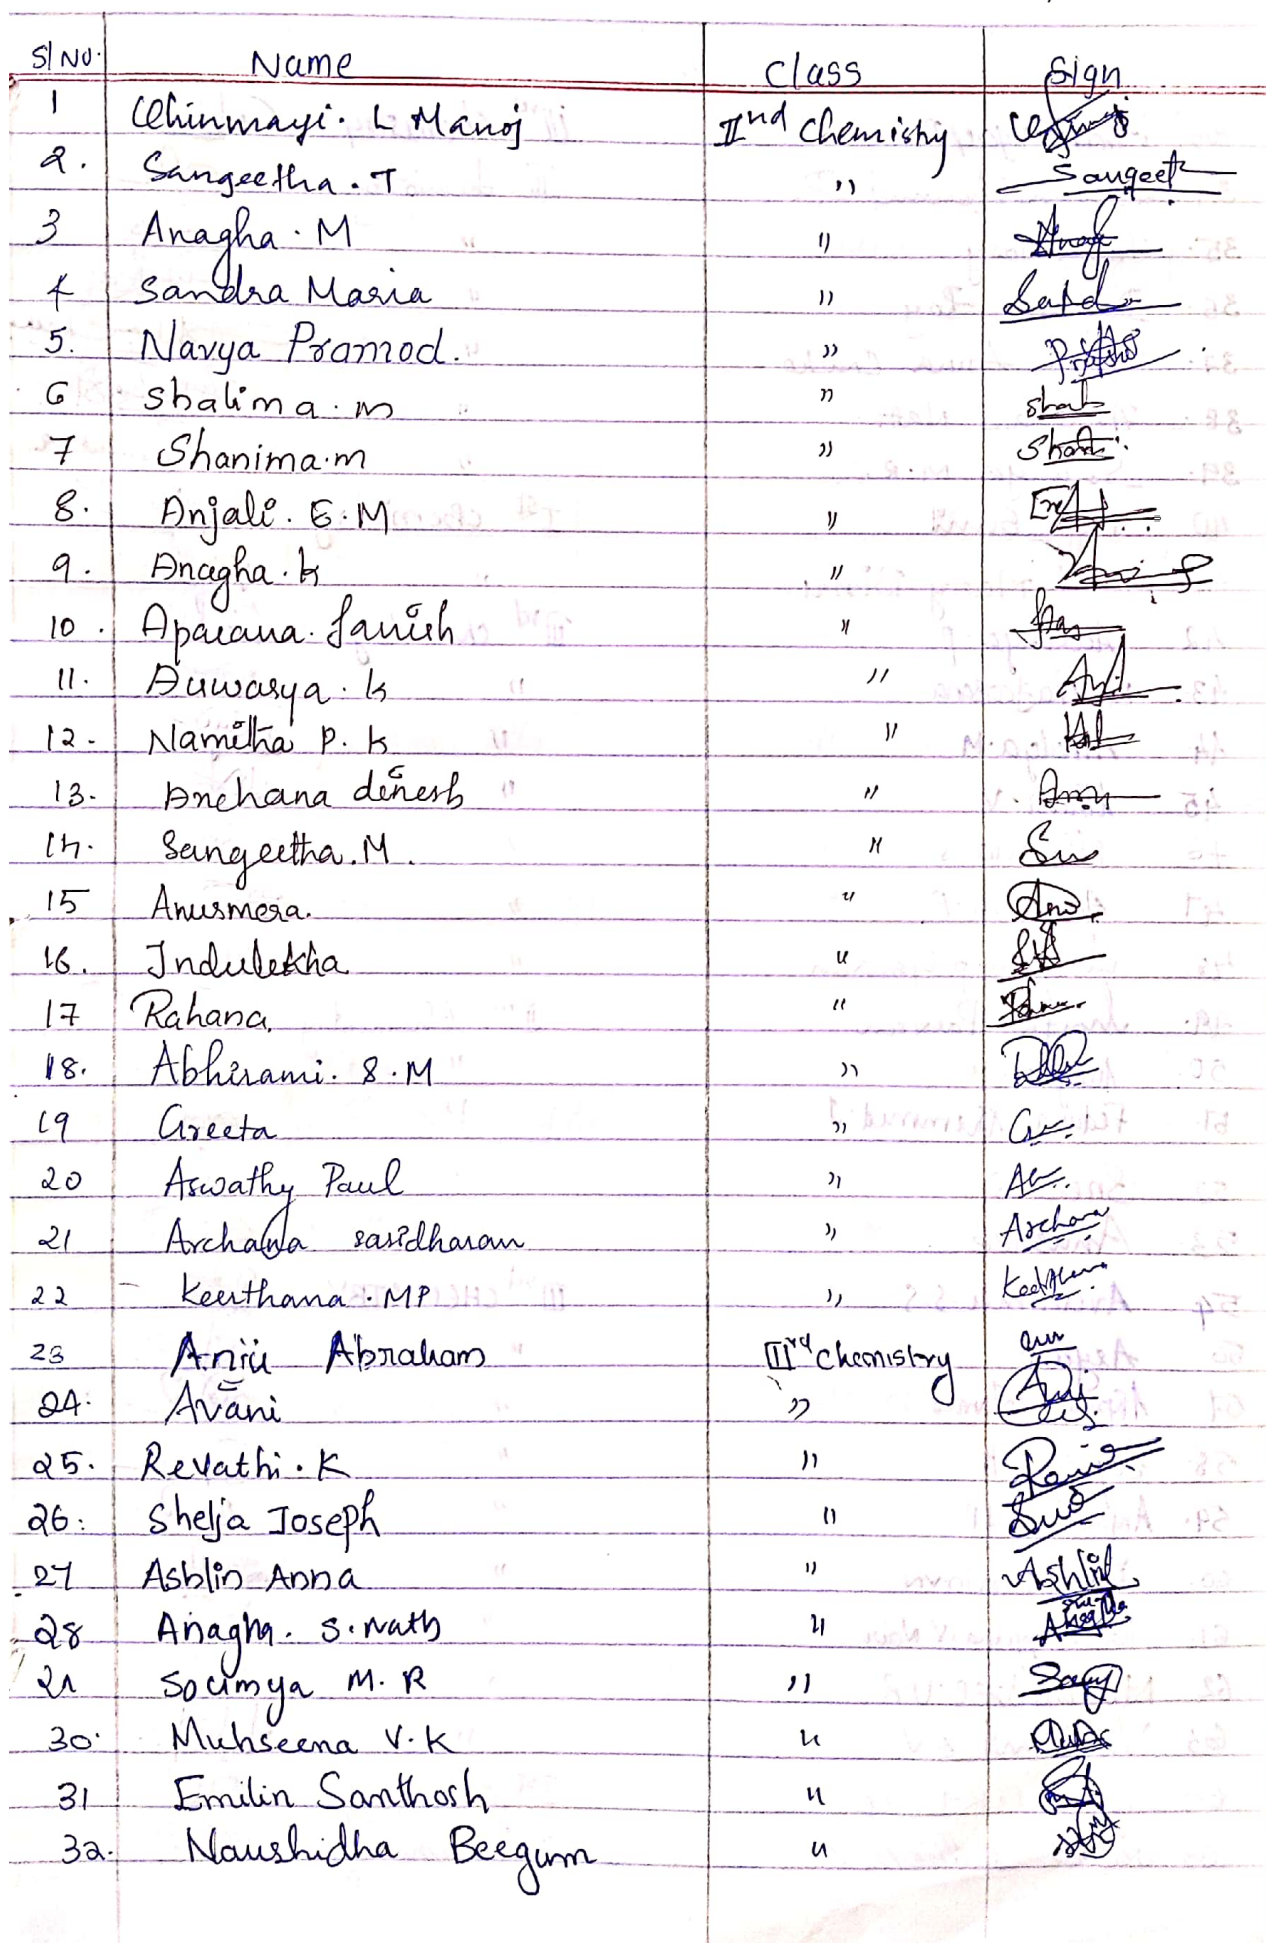 Sl No. Name Class Sign
1 Chinmayi. L Manoj IInd Chemistry
2. Sangeetha. T ,, Sangeeth
3 Anagha. M ,,
4 Sandra Maria ,,
5. Navya Pramod. ,,
6 Shalima. m ,, Shal
7 Shanima. m ,,
8. Anjali. E. M ,,
9. Anagha. k ,,
10. Aparana. Janish ,,
11. Anwasya. k ,,
12. Namitha P. K ,,
13. Anchana dinesh ,,
14. Sangeetha. M. ,,
15 Anusmera. ,,
16. Indulekha ,,
17 Rahana, ,,
18. Abhirami. S. M ,,
19 Greeta ,,
20 Aswathy Paul ,,
21 Archana sasidharan ,, Archana
22 Keerthana. MP ,, Keerthana
23 Anju Abraham IIrd chemistry
24. Avani ,,
25. Revathi. K ,,
26. Shelja Joseph ,,
27 Ashlin Anna ,, Ashlin
28 Anagha. S. Nath ,, Anagha
29 Soumya M. R ,,
30. Muhseena V. K ,,
31 Emilin Santhosh ,,
32. Naushidha Beegum ,,